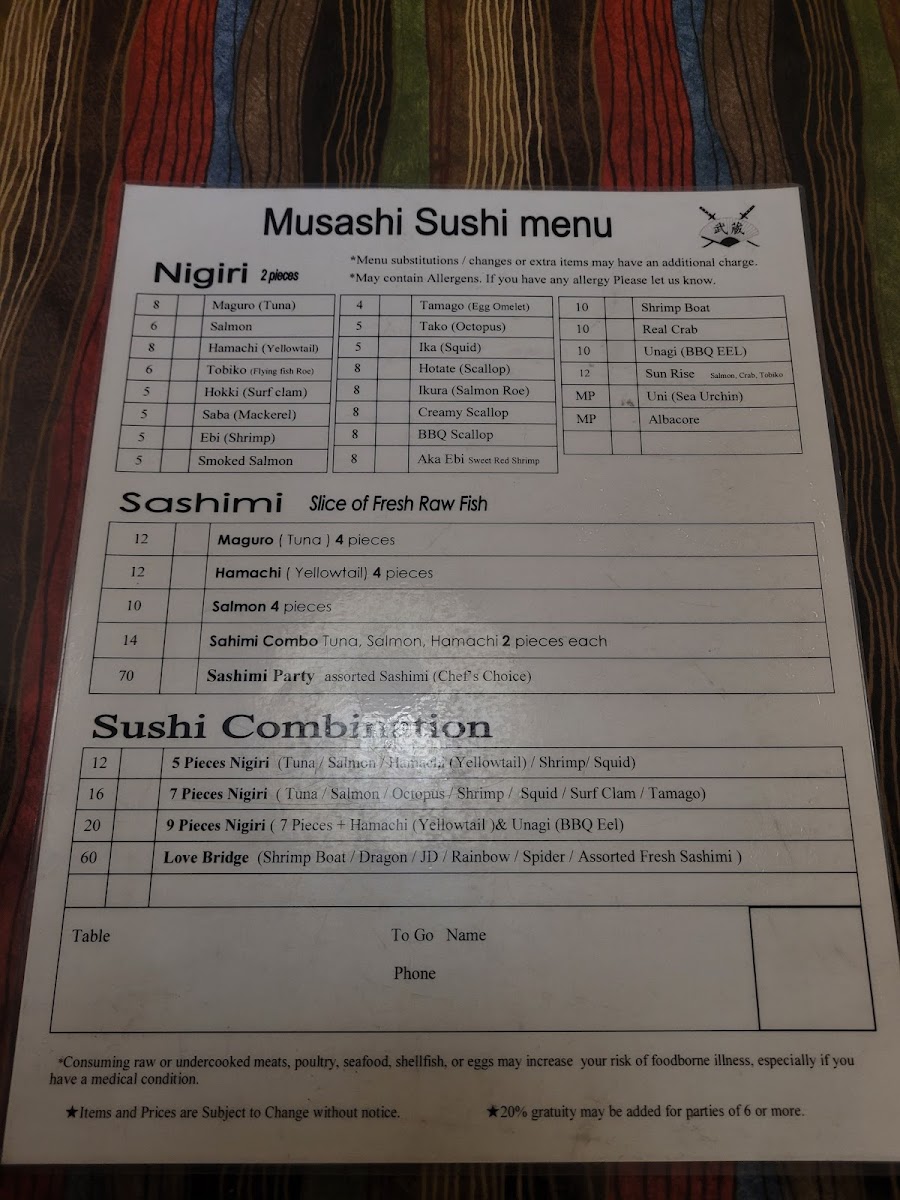 Musashi Sushi menu
武蔵
Nigiri 2 pieces
*Menu substitutions / changes or extra items may have an additional charge.
*May contain Allergens. If you have any allergy Please let us know.
8 Maguro (Tuna)
6 Salmon
8 Hamachi (Yellowtail)
6 Tobiko (Flying fish Roe)
5 Hokki (Surf clam)
5 Saba (Mackerel)
5 Ebi (Shrimp)
5 Smoked Salmon
4 Tamago (Egg Omelet)
5 Tako (Octopus)
5 Ika (Squid)
8 Hotate (Scallop)
8 Ikura (Salmon Roe)
8 Creamy Scallop
8 BBQ Scallop
8 Aka Ebi Sweet Red Shrimp
10 Shrimp Boat
10 Real Crab
10 Unagi (BBQ EEL)
12 Sun Rise Salmon, Crab, Tobiko
MP Uni (Sea Urchin)
MP Albacore
Sashimi Slice of Fresh Raw Fish
12 Maguro ( Tuna ) 4 pieces
12 Hamachi ( Yellowtail) 4 pieces
10 Salmon 4 pieces
14 Sahimi Combo Tuna, Salmon, Hamachi 2 pieces each
70 Sashimi Party assorted Sashimi (Chef's Choice)
Sushi Combination
12 5 Pieces Nigiri (Tuna / Salmon / Hamachi (Yellowtail) / Shrimp/ Squid)
16 7 Pieces Nigiri ( Tuna / Salmon / Octopus / Shrimp / Squid / Surf Clam / Tamago)
20 9 Pieces Nigiri ( 7 Pieces + Hamachi (Yellowtail )& Unagi (BBQ Eel)
60 Love Bridge (Shrimp Boat / Dragon / JD / Rainbow / Spider / Assorted Fresh Sashimi )
Table To Go Name
Phone
*Consuming raw or undercooked meats, poultry, seafood, shellfish, or eggs may increase your risk of foodborne illness, especially if you
have a medical condition.
★Items and Prices are Subject to Change without notice. ★20% gratuity may be added for parties of 6 or more.